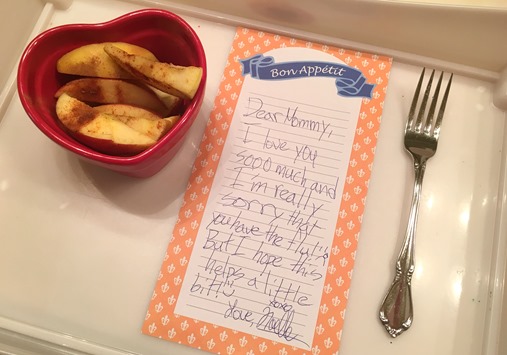 Bon Appétit
Dear Mommy,
I love you
sooo much and
I'm really
sorry that
you have the flu!
But I hope this
helps a little
bit!!
xoxo
Love,